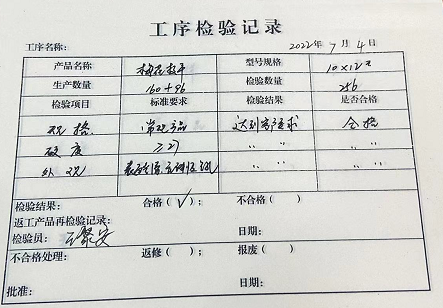 工序检验记录
工序名称: 2022年 7月 4日
产品名称 型号规格 10×12
生产数量 160+96 检验数量 256
检验项目 标准要求 检验结果 是否合格
规格 常规产品 达到客户要求 合格
硬度 ≥27 〃 〃 〃 〃
外观 〃 〃 〃 〃
检验结果: 合格(√); 不合格( )
返工产品再检验记录:
检验员: 日期:
不合格处理: 返修( ); 报废( )
批准: 日期: